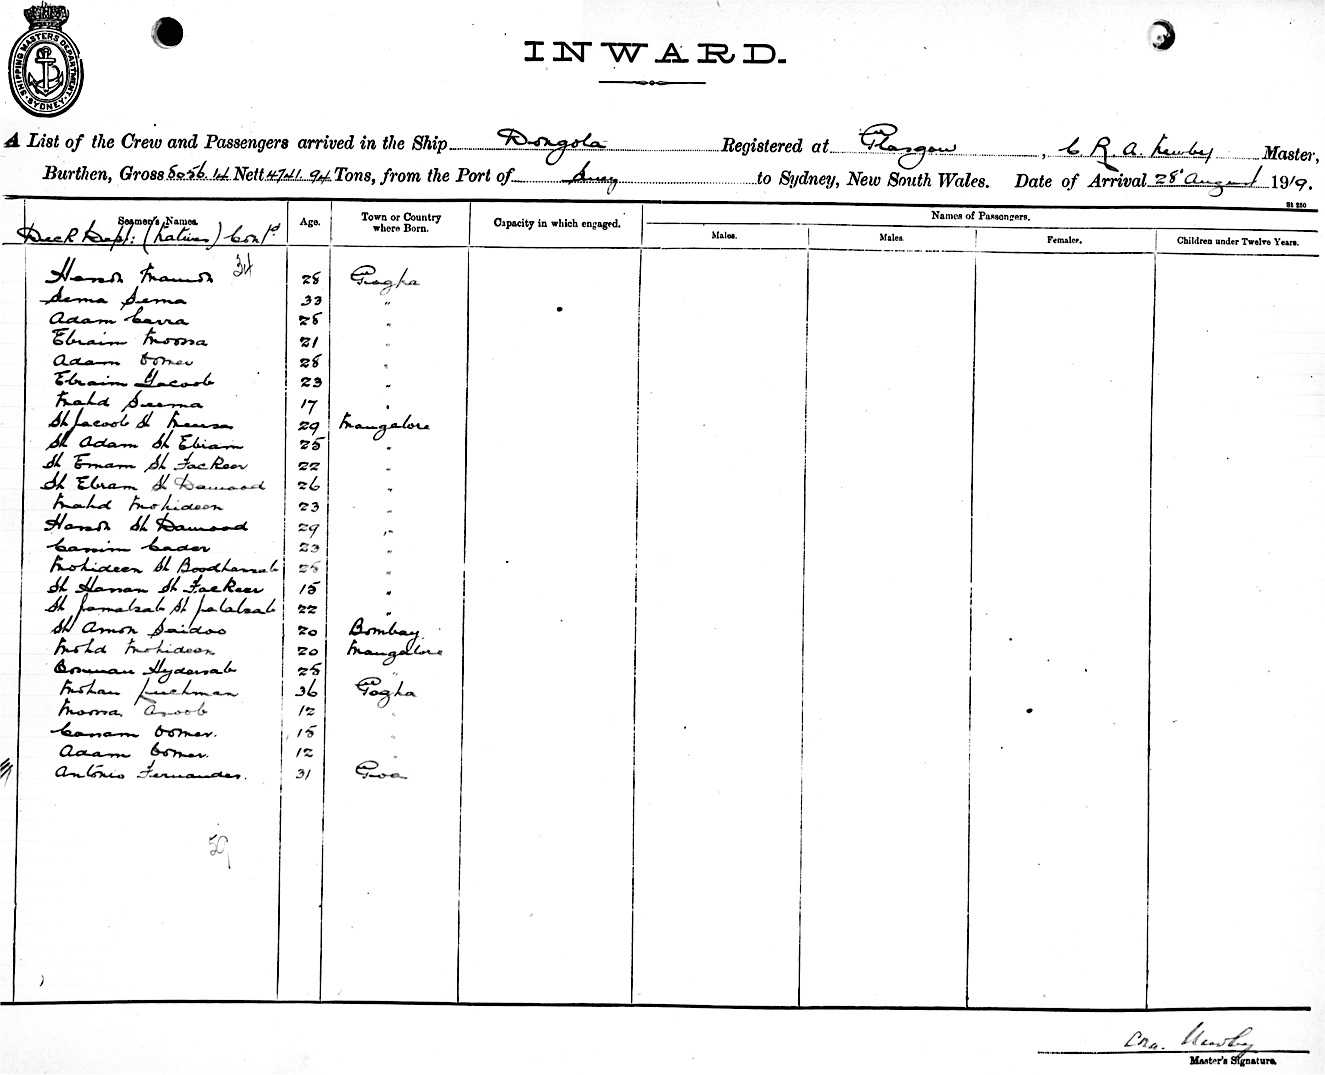 SHIPPING MASTERS DEPARTMENT · SYDNEY ·
INWARD.
A List of the Crew and Passengers arrived in the Ship Dongola Registered at Glasgow, C R A. Newby Master,
Burthen, Gross 8056.14 Nett 4741.94 Tons, from the Port of Suez to Sydney, New South Wales. Date of Arrival 28 August 1919.
Seamen's Names. Age. Town or Country where Born. Capacity in which engaged. Names of Passengers.
Males. Males. Females. Children under Twelve Years.
Deck Dept: (Natives) Cont'd
34
28 Gogha
Sema Sema 33 "
Adam 28 "
Ebraim Moosa 21 "
Adam Oomer 28 "
Ebraim Yacoob 23 "
Mahd Seema 17 "
Sk Jacoob Sk 29 Mangalore
Sk Adam Sk Ebram 25 "
Sk Emam Sk Fackeer 22 "
Sk Ebram Sk Dawood 26 "
Mahd Mohideen 23 "
Hassan Sk Dawood 29 "
Cassim Cader 23 "
Mohideen Sk 25 "
Sk Hassan Sk Fackeer 18 "
Sk Jamalsab Sk Jalalsab 22 "
Sk Amon Saidoo 20 Bombay
Mohd Mohideen 20 Mangalore
Hydersab 25 "
Mohan Luchman 36 Gogha
Moosa 12 "
Oomer. 18 "
Adam Oomer. 12 "
Antonio Fernandes. 31 Goa
59
Cra. Newby
Master's Signature.